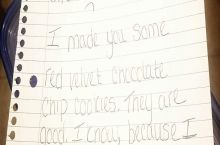 I made you some
red velvet chocolate
chip cookies. They are
good I know, because I